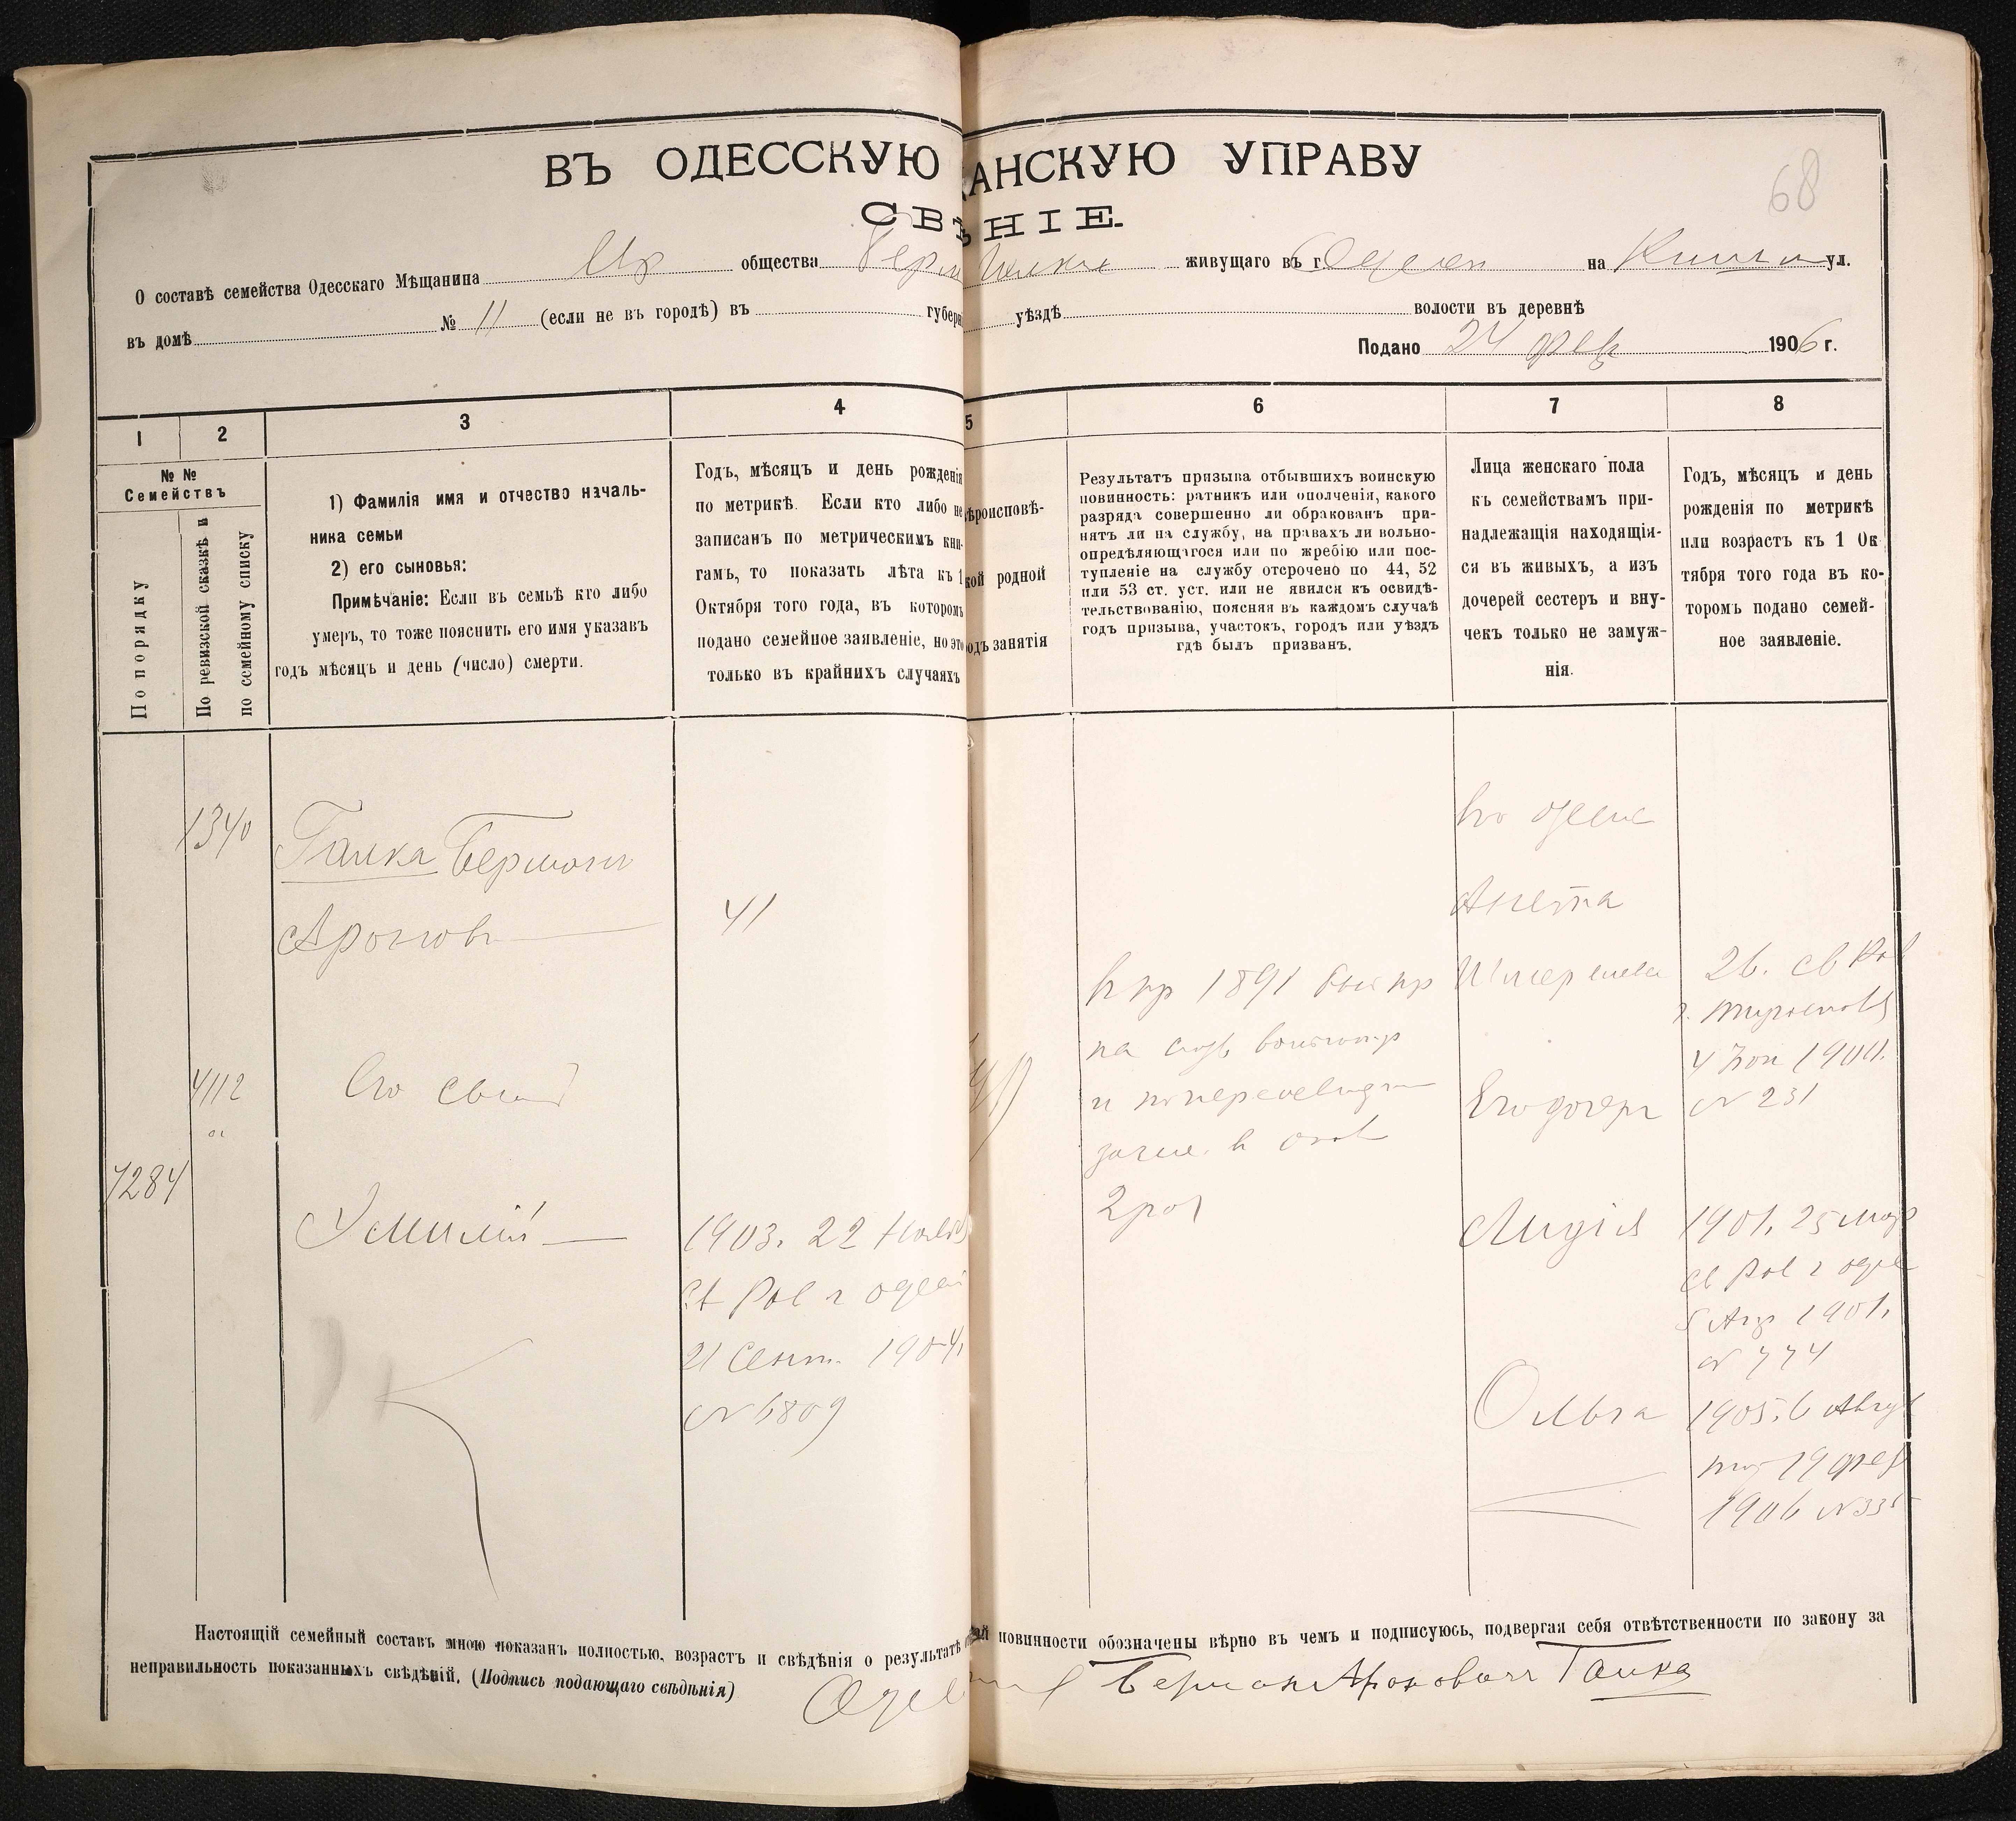 ВЪ ОДЕССКУЮ АНСКУЮ УПРАВУ
68
СВѢНІЕ.
О составѣ семейства Одесскаго Мѣщанина общества живущаго въ г. на ул.
въ домѣ № 11 (если не въ городѣ) въ губерн уѣздѣ волости въ деревнѣ
Подано 24 фев 1906 г.
1 2 3 4 5 6 7 8
№ №
Семействъ
По порядку
По ревизской сказкѣ и
по семейному списку
1) Фамилія имя и отчество началь-
ника семьи
2) его сыновья:
Примѣчаніе: Если въ семьѣ кто либо
умеръ, то тоже пояснить его имя указавъ
годъ мѣсяцъ и день (число) смерти.
Годъ, мѣсяцъ и день рожденія
по метрикѣ. Если кто либо не
записанъ по метрическимъ кни-
гамъ, то показать лѣта къ 1
Октября того года, въ которомъ
подано семейное заявленіе, но это
только въ крайнихъ случаяхъ
ѣроисповѣ-
кой родной
одъ занятія
Результатъ призыва отбывшихъ воинскую
повинность: ратникъ или ополченія, какого
разряда совершенно ли обракованъ при-
нятъ ли на службу, на правахъ ли вольно-
опредѣляющагося или по жребію или пос-
тупленіе на службу отсрочено по 44, 52
или 53 ст. уст. или не явился къ освидѣ-
тельствованію, поясняя въ каждомъ случаѣ
годъ призыва, участокъ, городъ или уѣздъ
гдѣ былъ призванъ.
Лица женскаго пола
къ семействамъ при-
надлежащія находящія-
ся въ живыхъ, а изъ
дочерей сестеръ и вну-
чекъ только не замуж-
нія.
Годъ, мѣсяцъ и день
рожденія по метрикѣ
или возрастъ къ 1 Ок
тября того года въ ко-
торомъ подано семей-
ное заявленіе.
1340
Галка Берман
Аронов
41
Анета
26. св Рав
в пр 1891
4112
7284
Эмилій
1903. 22 Нояб
св Рав г одес
21 Сент. 1904.
№ 6809
и
2 раз
4 1900.
№ 231
Его дочери
Лидія
1901. 25 мар
св Рав г одес
5 Апр 1901.
№ 774
Ольга
1905. 6 Авгу
19 фев
1906 № 335
Настоящій семейный составъ мною показанъ полностью, возрастъ и свѣдѣнія о результатѣ повинности обозначены вѣрно въ чемъ и подписуюсь, подвергая себя отвѣтственности по закону за
неправильность показанныхъ свѣдѣній. (Подпись подающаго свѣдѣнія)
Берман Аронович Галка